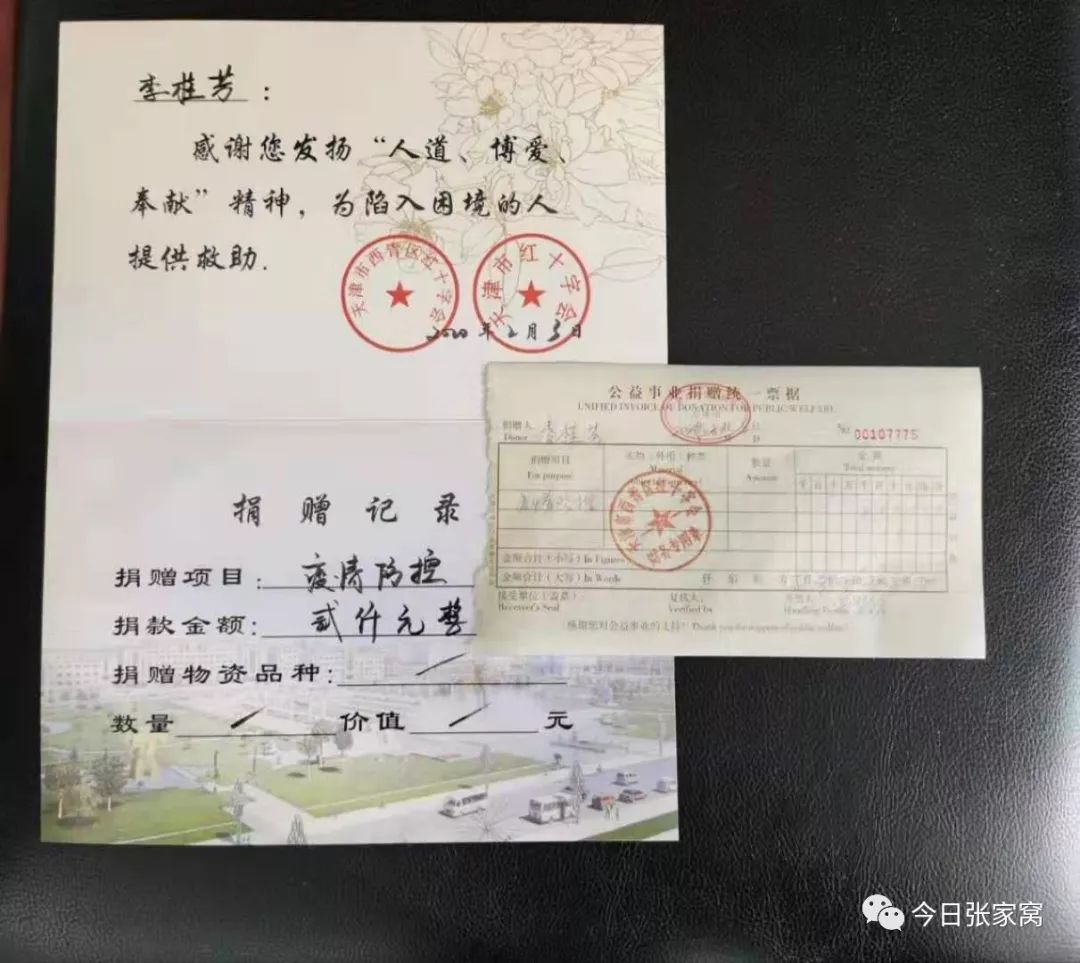 李桂芳：
感谢您发扬“人道、博爱、
奉献”精神，为陷入困境的人
提供救助.
天津市西青区红十字会
天津市红十字会
2020年2月3日
捐赠记录
捐赠项目：疫情防控
捐款金额：贰仟元整
捐赠物资品种：/
数量/价值/元
公益事业捐赠统一票据
UNIFIED INVOICE OF DONATION FOR PUBLIC WELFARE
捐赠人 李桂芳
Donor
No 00107775
捐赠项目
For purpose
实物（外币）种类
Material
数量
Amount
金额
Total money
疫情防控
天津市西青区红十字会
金额合计（小写）In Figures
金额合计（大写）In Words
接受单位（盖章）：
Receiver's Seal
复核人：
Verified by
开票人：
Handling Person
感谢您对公益事业的支持！Thank you for support of public welfare!
今日张家窝